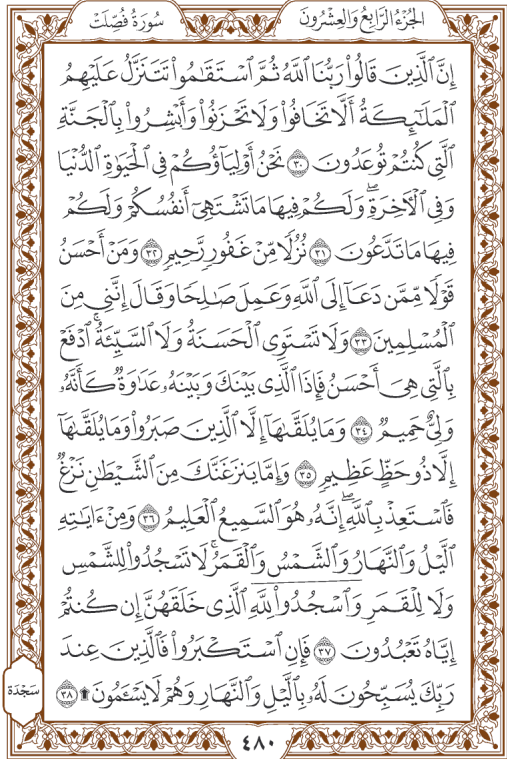 الجُزْءُ الرَّابِعُ وَالعِشْرُونَ
سُورَةُ فُصِّلَتْ
إِنَّ ٱلَّذِينَ قَالُواْ رَبُّنَا ٱللَّهُ ثُمَّ ٱسْتَقَٰمُواْ تَتَنَزَّلُ عَلَيْهِمُ
ٱلْمَلَٰٓئِكَةُ أَلَّا تَخَافُواْ وَلَا تَحْزَنُواْ وَأَبْشِرُواْ بِٱلْجَنَّةِ
ٱلَّتِي كُنتُمْ تُوعَدُونَ ٣٠ نَحْنُ أَوْلِيَآؤُكُمْ فِي ٱلْحَيَوٰةِ ٱلدُّنْيَا
وَفِي ٱلْأٓخِرَةِۖ وَلَكُمْ فِيهَا مَا تَشْتَهِيٓ أَنفُسُكُمْ وَلَكُمْ
فِيهَا مَا تَدَّعُونَ ٣١ نُزُلًا مِّنْ غَفُورٍ رَّحِيمٍ ٣٢ وَمَنْ أَحْسَنُ
قَوْلًا مِّمَّن دَعَآ إِلَى ٱللَّهِ وَعَمِلَ صَٰلِحًا وَقَالَ إِنَّنِي مِنَ
ٱلْمُسْلِمِينَ ٣٣ وَلَا تَسْتَوِي ٱلْحَسَنَةُ وَلَا ٱلسَّيِّئَةُۚ ٱدْفَعْ
بِٱلَّتِي هِيَ أَحْسَنُ فَإِذَا ٱلَّذِي بَيْنَكَ وَبَيْنَهُۥ عَدَٰوَةٌ كَأَنَّهُۥ
وَلِيٌّ حَمِيمٌ ٣٤ وَمَا يُلَقَّىٰهَآ إِلَّا ٱلَّذِينَ صَبَرُواْ وَمَا يُلَقَّىٰهَآ
إِلَّا ذُو حَظٍّ عَظِيمٍ ٣٥ وَإِمَّا يَنزَغَنَّكَ مِنَ ٱلشَّيْطَٰنِ نَزْغٌ
فَٱسْتَعِذْ بِٱللَّهِۖ إِنَّهُۥ هُوَ ٱلسَّمِيعُ ٱلْعَلِيمُ ٣٦ وَمِنْ ءَايَٰتِهِ
ٱلَّيْلُ وَٱلنَّهَارُ وَٱلشَّمْسُ وَٱلْقَمَرُۚ لَا تَسْجُدُواْ لِلشَّمْسِ
وَلَا لِلْقَمَرِ وَٱسْجُدُواْ لِلَّهِ ٱلَّذِي خَلَقَهُنَّ إِن كُنتُمْ
إِيَّاهُ تَعْبُدُونَ ٣٧ فَإِنِ ٱسْتَكْبَرُواْ فَٱلَّذِينَ عِندَ
رَبِّكَ يُسَبِّحُونَ لَهُۥ بِٱلَّيْلِ وَٱلنَّهَارِ وَهُمْ لَا يَسْـَٔمُونَ ۩ ٣٨
سَجْدَة
٤٨٠